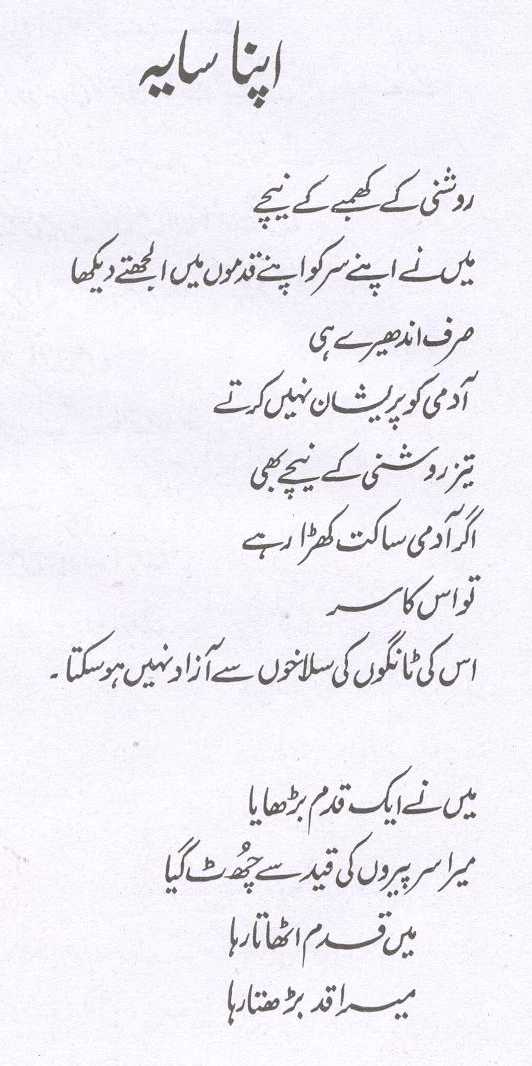 اپنا سایہ
روشنی کے کھمبے کے نیچے
میں نے اپنے سر کو اپنے قدموں میں الجھتے دیکھا
صرف اندھیرے ہی
آدمی کو پریشان نہیں کرتے
تیز روشنی کے نیچے بھی
اگر آدمی ساکت کھڑا رہے
تو اس کا سر
اس کی ٹانگوں کی سلاخوں سے آزاد نہیں ہو سکتا۔
میں نے ایک قدم بڑھایا
میرا سر پیروں کی قید سے چُھٹ گیا
میں قدم اٹھاتا رہا
میرا قد بڑھتا رہا